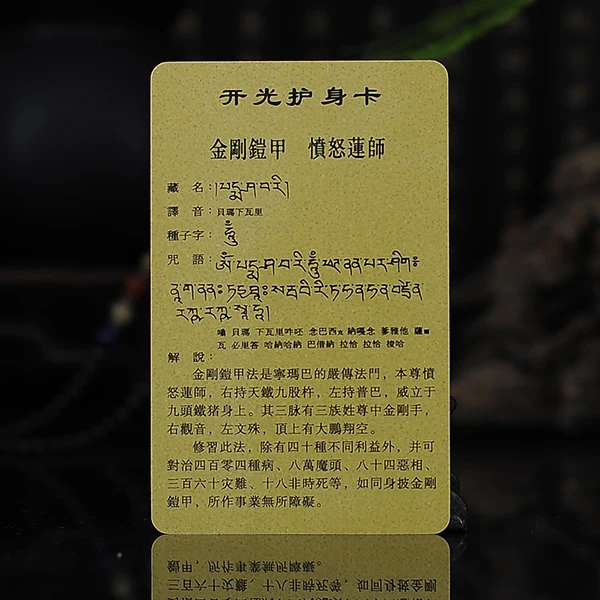 开光护身卡
金剛鎧甲 憤怒蓮師
藏 名：།པདྨ་ཤ་བ་རི།
譯 音：貝瑪下瓦里
種子字：ཧཱུྃ
咒 語：ༀ་པདྨ་ཤ་བ་རི་ཧཱུྃ
貝瑪 下瓦里吽呸 念巴西
瓦 必里答 哈納哈納 巴借納 拉恰 拉恰 梭哈
解 說：
金剛鎧甲法是寧瑪巴的嚴傳法門，本尊憤
怒蓮師，右持天鐵九股杵，左持普巴，威立于
九頭鐵猪身上。其三脉有三族姓尊中金剛手，
右觀音，左文殊，頂上有大鵬翔空。
修習此法，除有四十種不同利益外，并可
對治四百零四種病、八萬魔頭、八十四惡相、
三百六十灾難、十八非時死等，如同身披金剛
鎧甲，所作事業無所障礙。